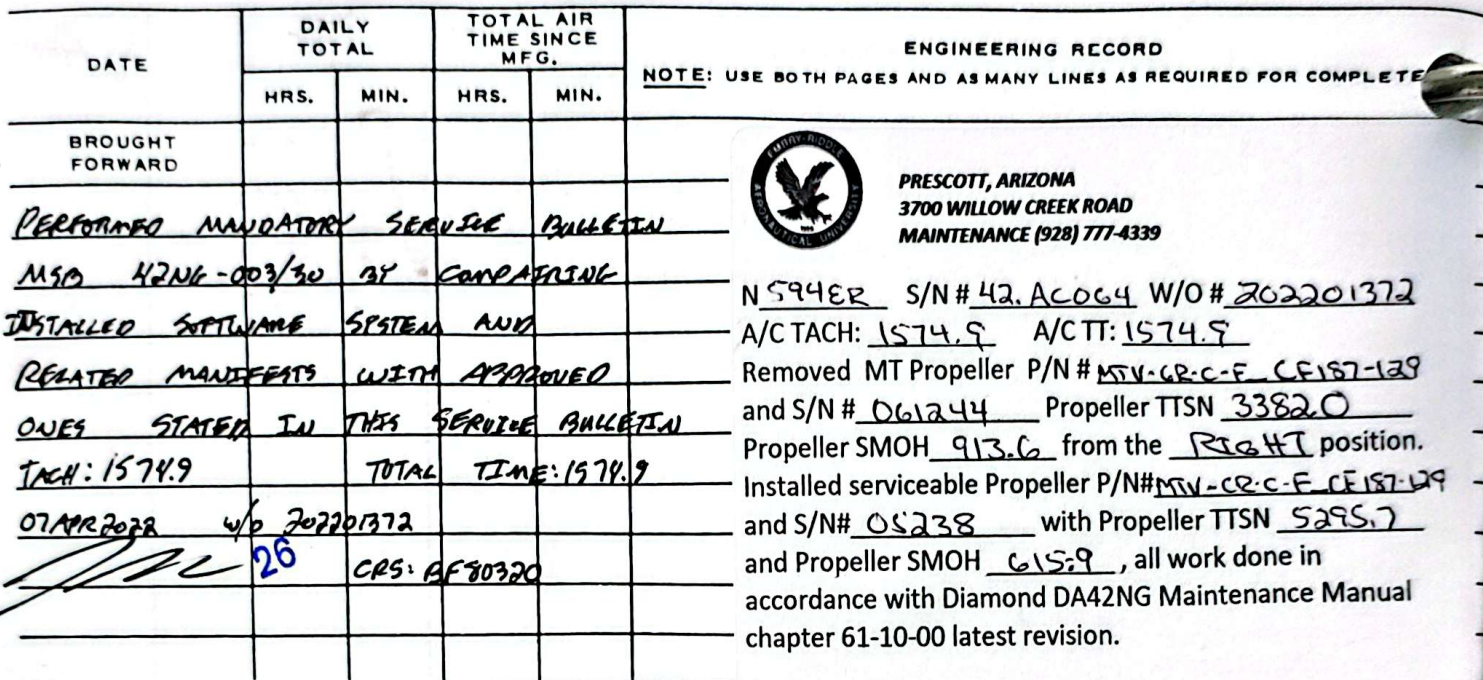 DATE
DAILY TOTAL
TOTAL AIR TIME SINCE MFG.
ENGINEERING RECORD
NOTE: USE BOTH PAGES AND AS MANY LINES AS REQUIRED FOR COMPLETE
HRS. MIN. HRS. MIN.
BROUGHT FORWARD
PERFORMED MANDATORY SERVICE BULLETIN
MSB 42NG-003/30 BY COMPAIRING
INSTALLED SOFTWARE SYSTEM AND
RELATED MANIFESTS WITH APPROVED
ONES STATED IN THIS SERVICE BULLETIN
TACH: 1574.9 TOTAL TIME: 1574.9
07APR2022 W/O 202201372
26 CRS: BF80320
EMBRY-RIDDLE
AERONAUTICAL UNIVERSITY
PRESCOTT, ARIZONA
3700 WILLOW CREEK ROAD
MAINTENANCE (928) 777-4339
N 594ER S/N # 42.AC064 W/O # 202201372
A/C TACH: 1574.9 A/C TT: 1574.9
Removed MT Propeller P/N # MTV-6R-C-F CF187-129
and S/N # 061244 Propeller TTSN 3382.0
Propeller SMOH 913.6 from the RIGHT position.
Installed serviceable Propeller P/N# MTV-6R-C-F CF187-129
and S/N# 05238 with Propeller TTSN 5295.7
and Propeller SMOH 615.9, all work done in
accordance with Diamond DA42NG Maintenance Manual
chapter 61-10-00 latest revision.